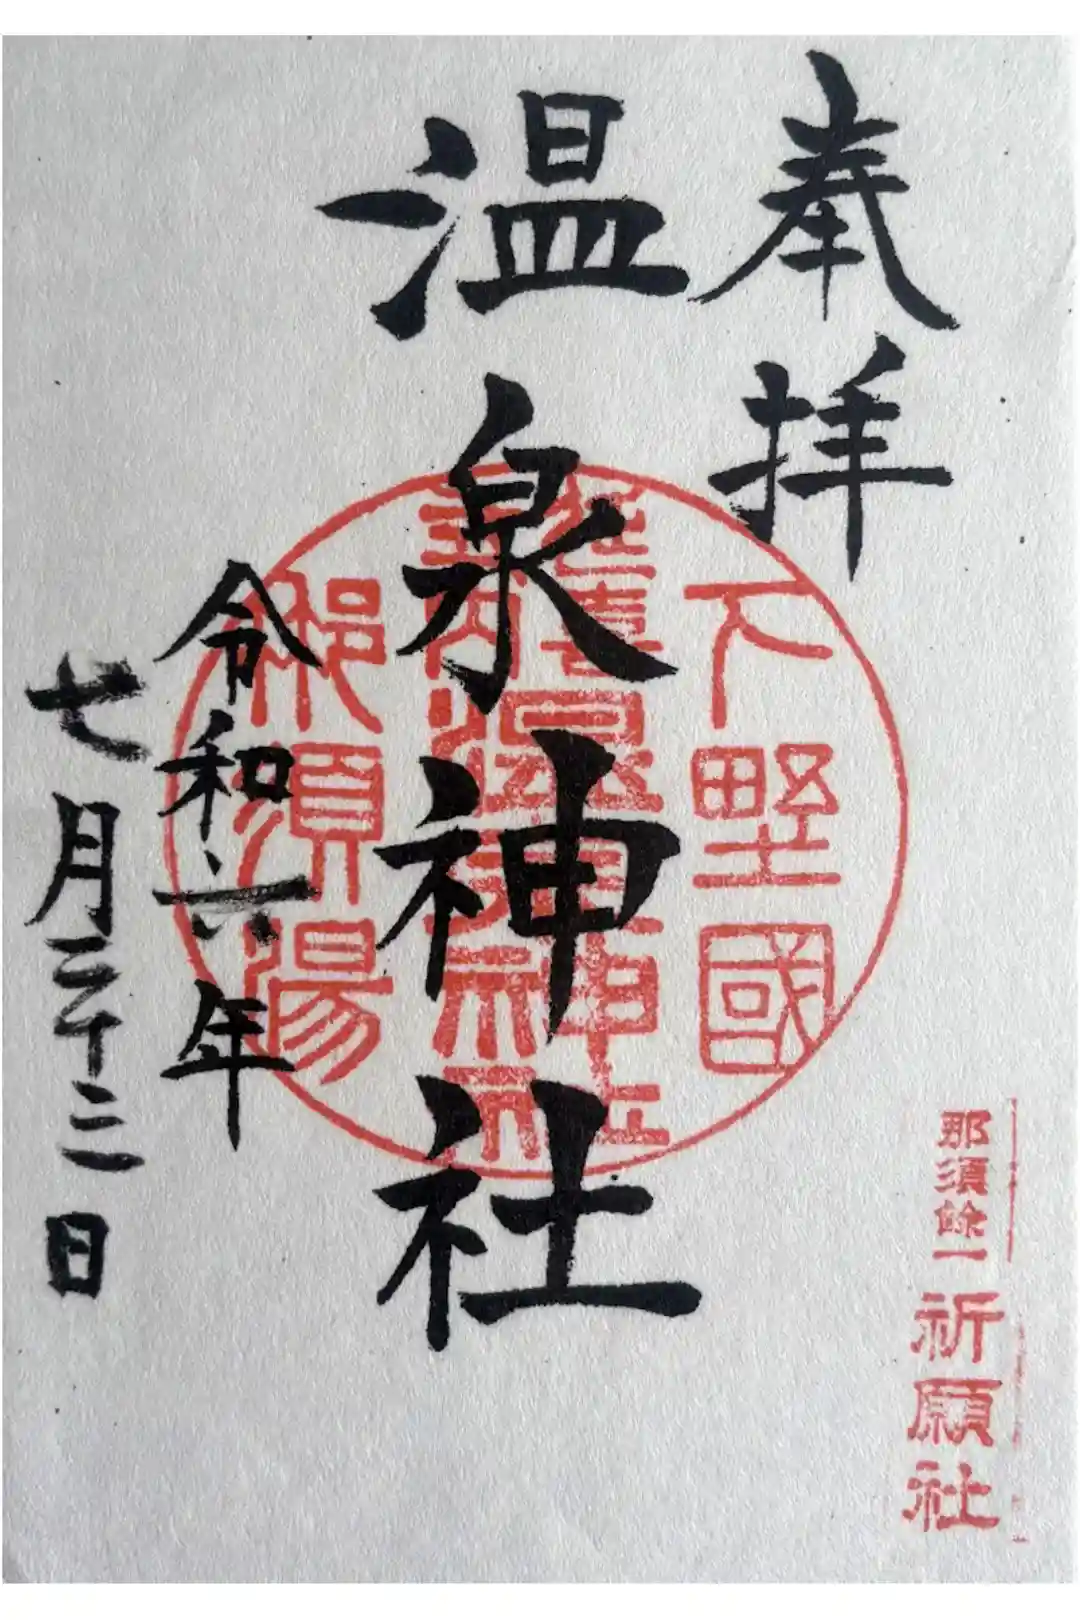 奉拝
温泉神社
令和六年
七月二十二日
下野國
延喜式内温泉神社
那須湯
那須餘一
祈願社